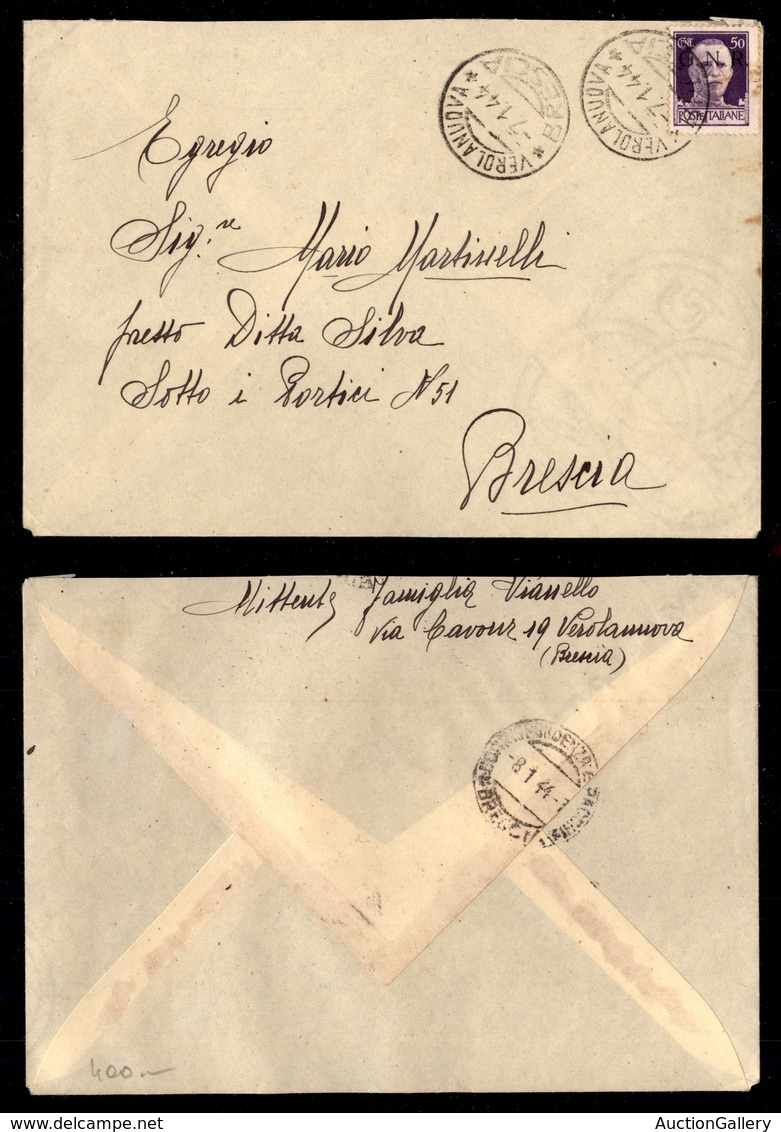 CENT. 50
G.N.R.
POSTE ITALIANE
VEROLANUOVA * BRESCIA *
-7.1.44
VEROLANUOVA *
-7.1.44
Egregio
Sig.re Mario Martinelli
presso Ditta Silva
Sotto i Portici N 51
Brescia
Mittente Famiglia Vianello
Via Cavour 19 Verolanuova
(Brescia)
-8.1.44-
400.—
AuctionGallery